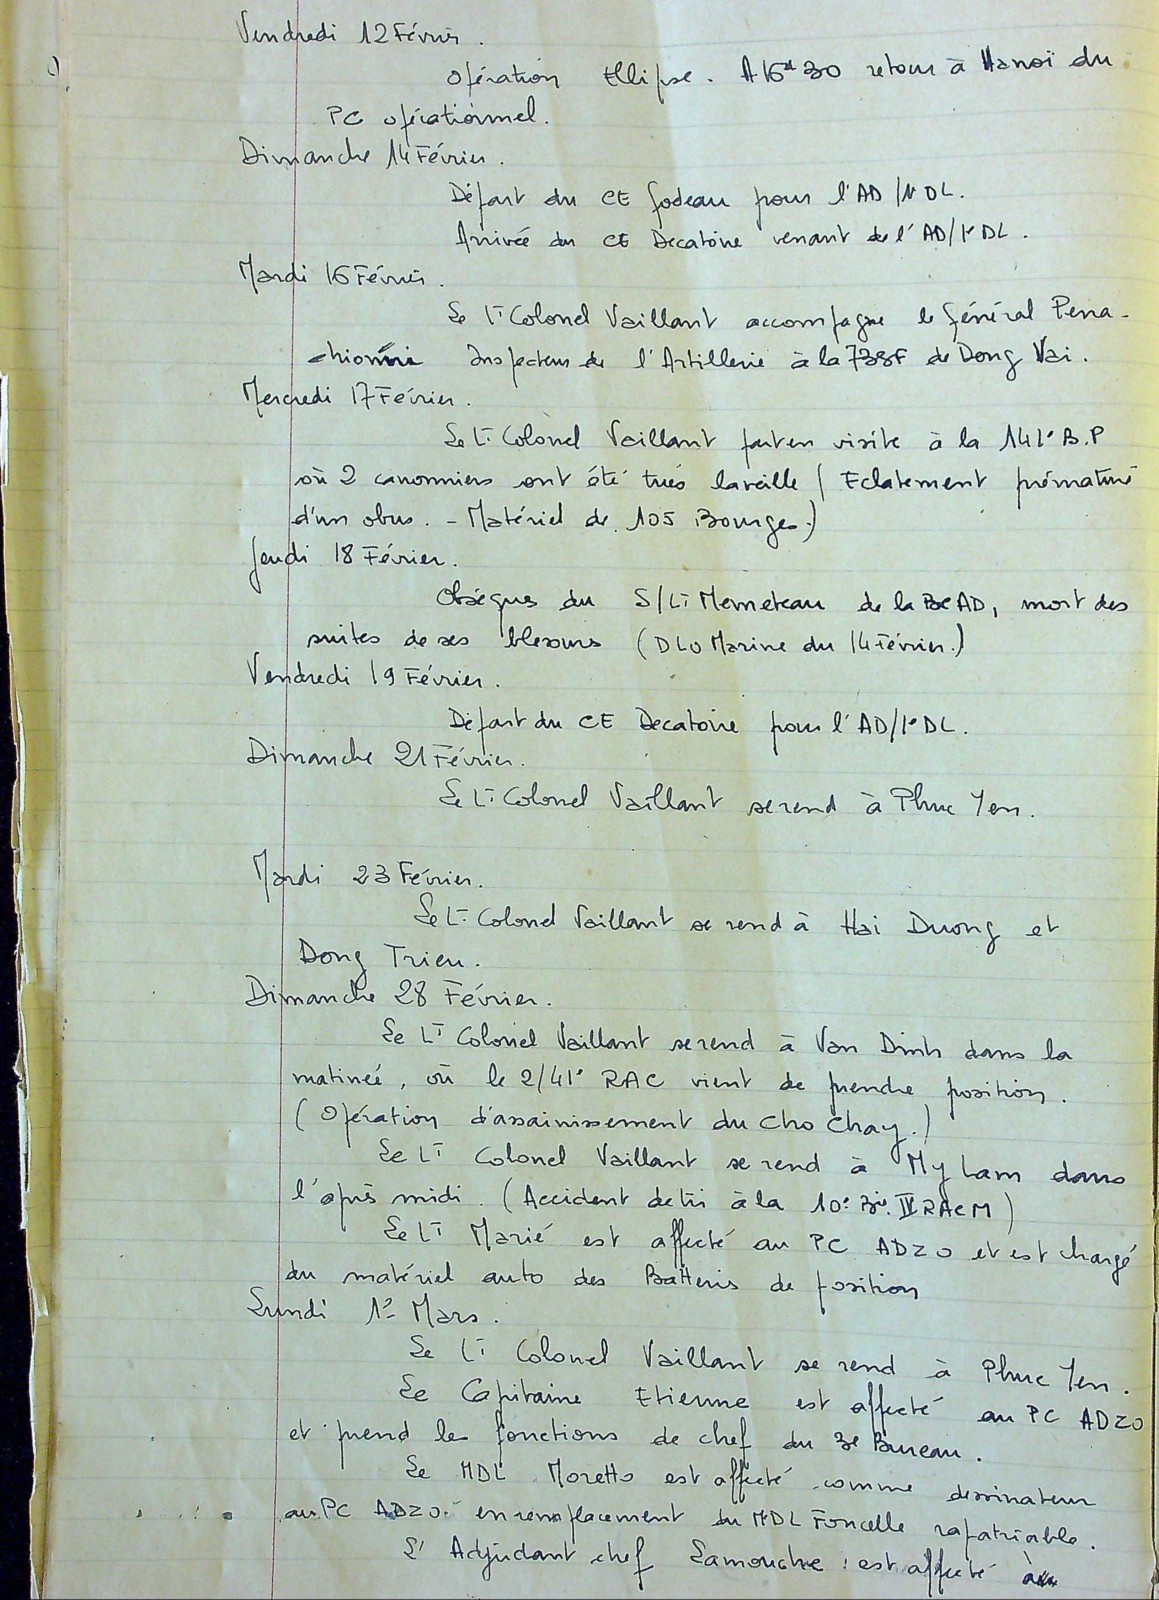 Vendredi 12 Février.
Opération Ellipse. A 16H30 retour à Hanoï du
PC opérationnel.
Dimanche 14 Février.
Départ du CE Godeau pour l'AD/1e DL.
Arrivée du CE Decatoire venant de l'AD/1e DL.
Mardi 16 Février.
Le Lt Colonel Vaillant accompagne le Général Pena-
chionni Inspecteur de l'Artillerie à la de Dong Vai.
Mercredi 17 Février.
Le Lt Colonel Vaillant part en visite à la 141e B.P
où 2 canonniers ont été tués la veille (Eclatement prématuré
d'un obus. - Matériel de 105 Bourges.)
Jeudi 18 Février.
Obsèques du S/Lt Merneteau de la AD, mort des
suites de ses blessures (DLO Marine du 14 Février.)
Vendredi 19 Février.
Départ du CE Decatoire pour l'AD/1e DL.
Dimanche 21 Février.
Le Lt Colonel Vaillant se rend à Phuc Yen.
Mardi 23 Février.
Le Lt Colonel Vaillant se rend à Hai Duong et
Dong Trieu.
Dimanche 28 Février.
Le Lt Colonel Vaillant se rend à Van Dinh dans la
matinée, où le 2/41e RAC vient de prendre position.
(Opération d'assainissement du Cho Chay.)
Le Lt Colonel Vaillant se rend à My Lam dans
l'après midi. (Accident de tir à la 10e Bie. IV RACM)
Le Lt Marié est affecté au PC ADZO et est chargé
du matériel auto des Batteries de position
Lundi 1er Mars.
Le Lt Colonel Vaillant se rend à Phuc Yen.
Le Capitaine Etienne est affecté au PC ADZO
et prend les fonctions de chef du 3e Bureau.
Le MDL Moretto est affecté comme dessinateur
au PC ADZO. en remplacement du MDL Foncelle rapatriable.
L'Adjudant chef Lamouche est affecté